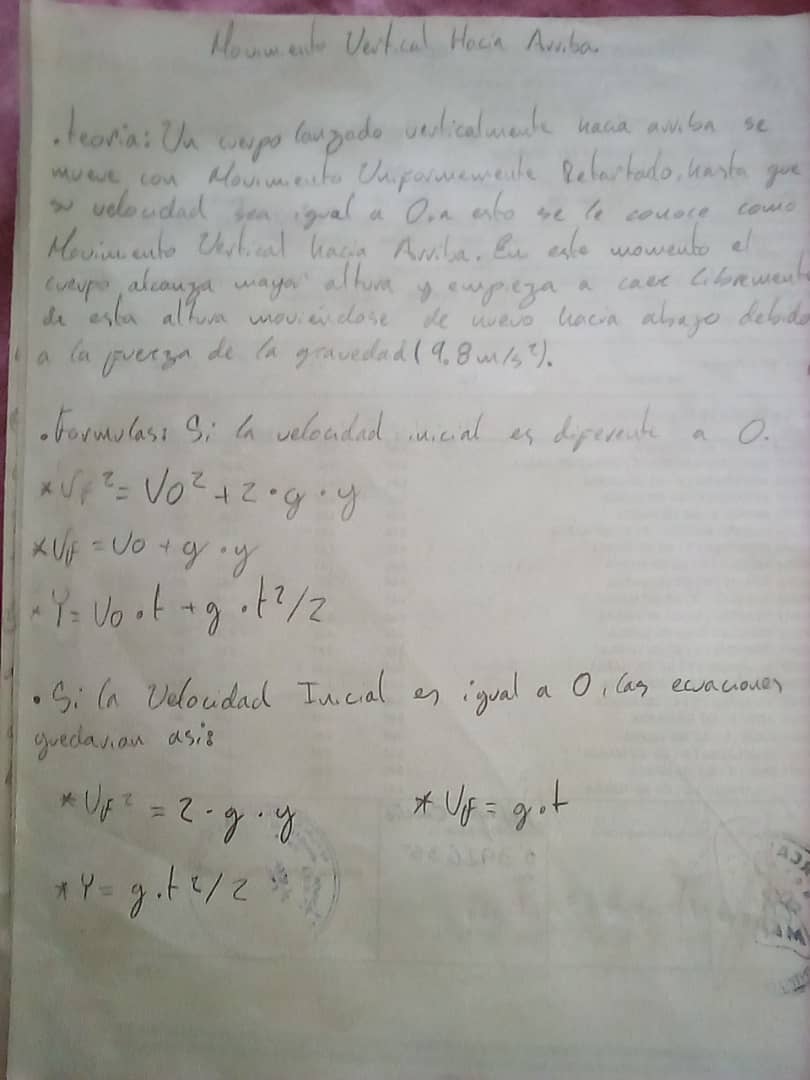 Movimento Vertical Hacia Arriba.
. teoria: Un cuerpo lanzado verticalmente hacia arriba se
mueve con Movimiento Uniformemente Retartado, hasta que
su velocidad sea igual a 0, a esto se le conoce como
Movimiento Vertical hacia Arriba. En este momento el
cuerpo alcanza mayor altura y empieza a caer libremente
de esta altura moviéndose de nuevo hacia abajo debido
a la fuerza de la gravedad (9.8 m/s²).
. Formulas: Si la velocidad inicial es diferente a 0.
* Vf² = Vo² + 2 · g · y
* Vf = Vo + g · y
* Y = Vo · t + g · t²/2
. Si la Velocidad Inicial es igual a 0, las ecuaciones
quedarian asi:
* Vf² = 2 · g · y * Vf = g · t
* Y = g . t²/2